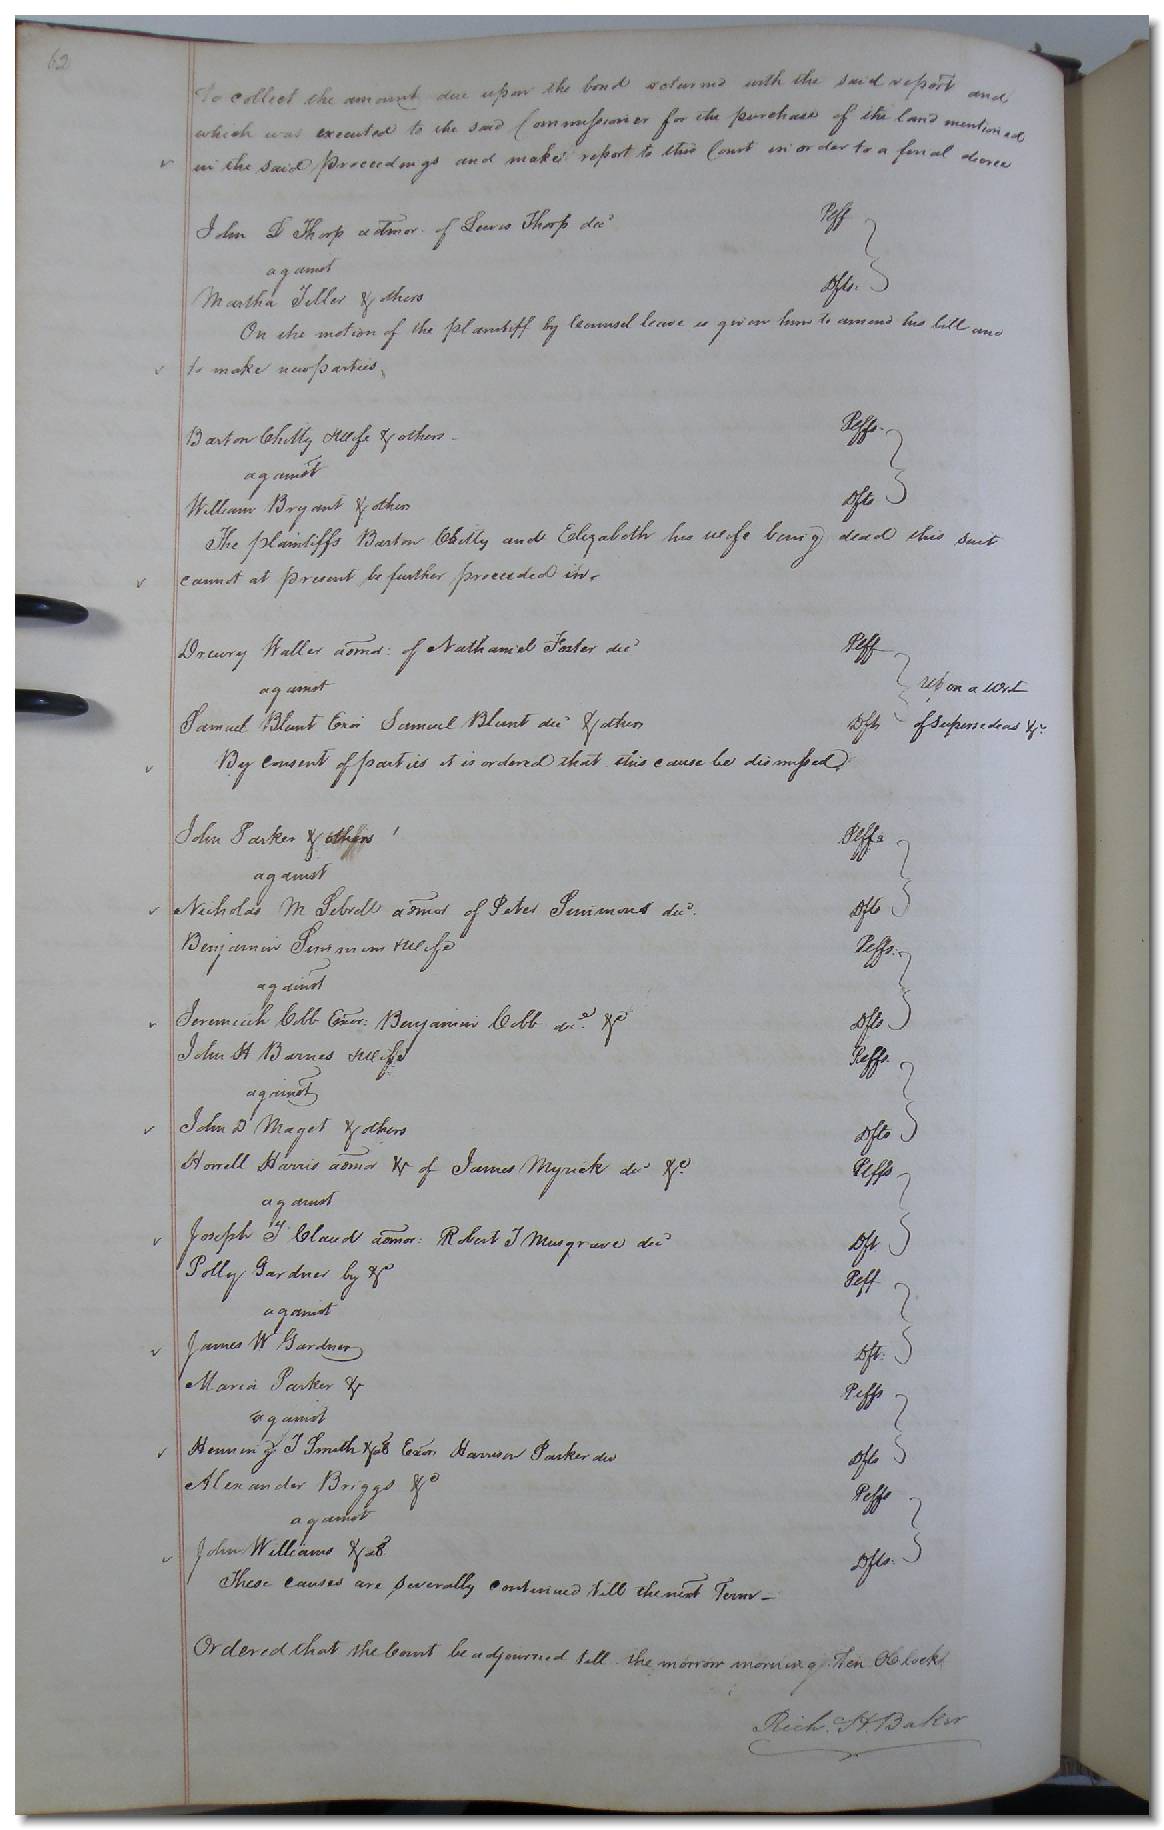 62
to collect the amount due upon the bond returned with the said report and
which was executed to the said Commissioner for the purchase of the land mentioned
in the said proceedings and make report to this Court in order to a final decree
John D Thorp admor. of Lewis Thorp decd Plff
against
Martha Teller & others Dfts.
On the motion of the plaintiff by Counsel leave is given him to amend his bill and
to make new parties.
Barton Chitty & wife & others Plffs.
against
William Bryant & others Dfts
The plaintiffs Barton Chitty and Elizabeth his wife being dead this suit
cannot at present be further proceeded in.
Drewry Waller admor: of Nathaniel Foster decd Plff
against Upon a Writ
Samuel Blunt Exor Samuel Blunt decd & others Dfts of Supersedeas &c.
By consent of parties it is ordered that this cause be dismissed.
John Parker & others Plffs
against
Nicholas M Sebrell admor of Peter Simmons decd. Dfts
Benjamin Simmons & wife Plffs.
against
Jeremiah Cobb Exor: Benjamin Cobb decd. &c Dfts
John H Barnes & wife Plffs.
against
John D Maget & others Dfts
Horrell Harris admor & of James Myrick decd &c. Plffs
against
Joseph T Claud admor: Robert T Musgrave decd Dft
Polly Gardner by &c Plff
against
James W Gardner Dft.
Maria Parker & Plffs
against
Henning T Smith & al Exors Harrison Parker decd Dfts
Alexander Briggs &c Plffs
against
John Williams & al Dfts.
These causes are severally continued till the next Term
Ordered that the Court be adjourned till the morrow morning Ten OClock
Rich. H. Baker